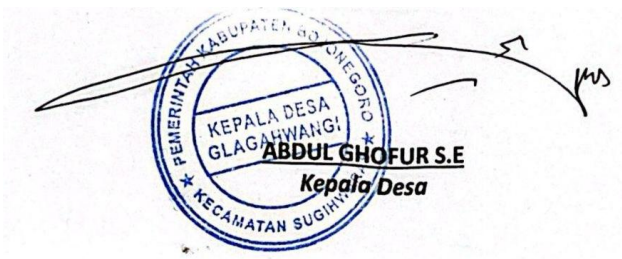 PEMERINTAH KABUPATEN BOJONEGORO
KEPALA DESA
GLAGAHWANGI
KECAMATAN
ABDUL GHOFUR S.E
Kepala Desa